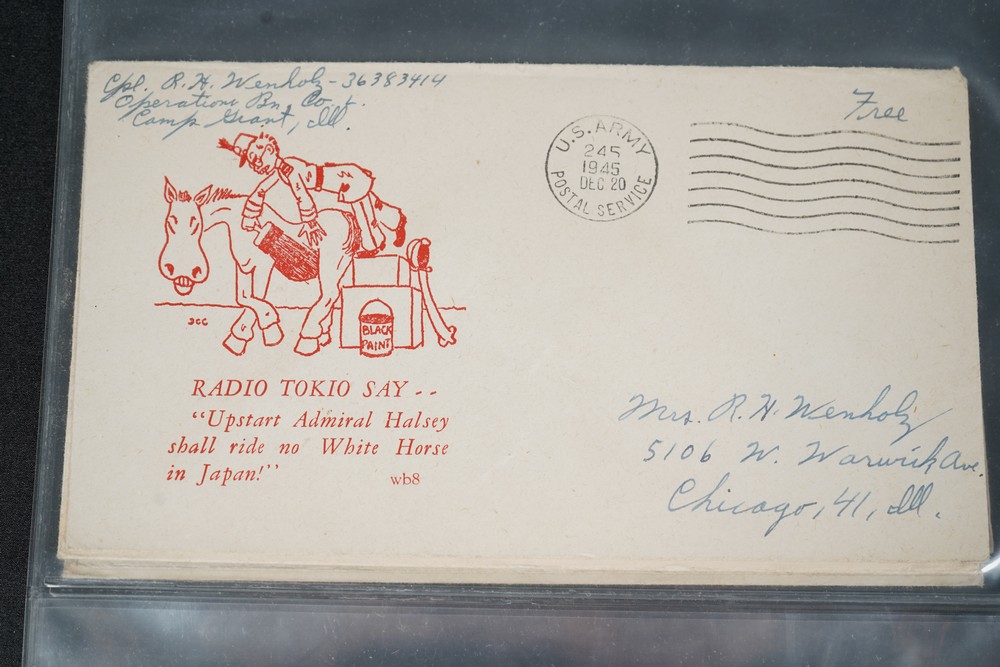 Cpl. R. H. Wenholz - 36383414
Operations Bn. Co.
Camp Grant, Ill.
Free
U.S. ARMY
245
1945
DEC 20
POSTAL SERVICE
BLACK
PAINT
JCC
RADIO TOKIO SAY - -
“Upstart Admiral Halsey
shall ride no White Horse
in Japan!”
wb8
Mrs. R. H. Wenholz
5106 W. Warwick Ave.
Chicago, 41, Ill.